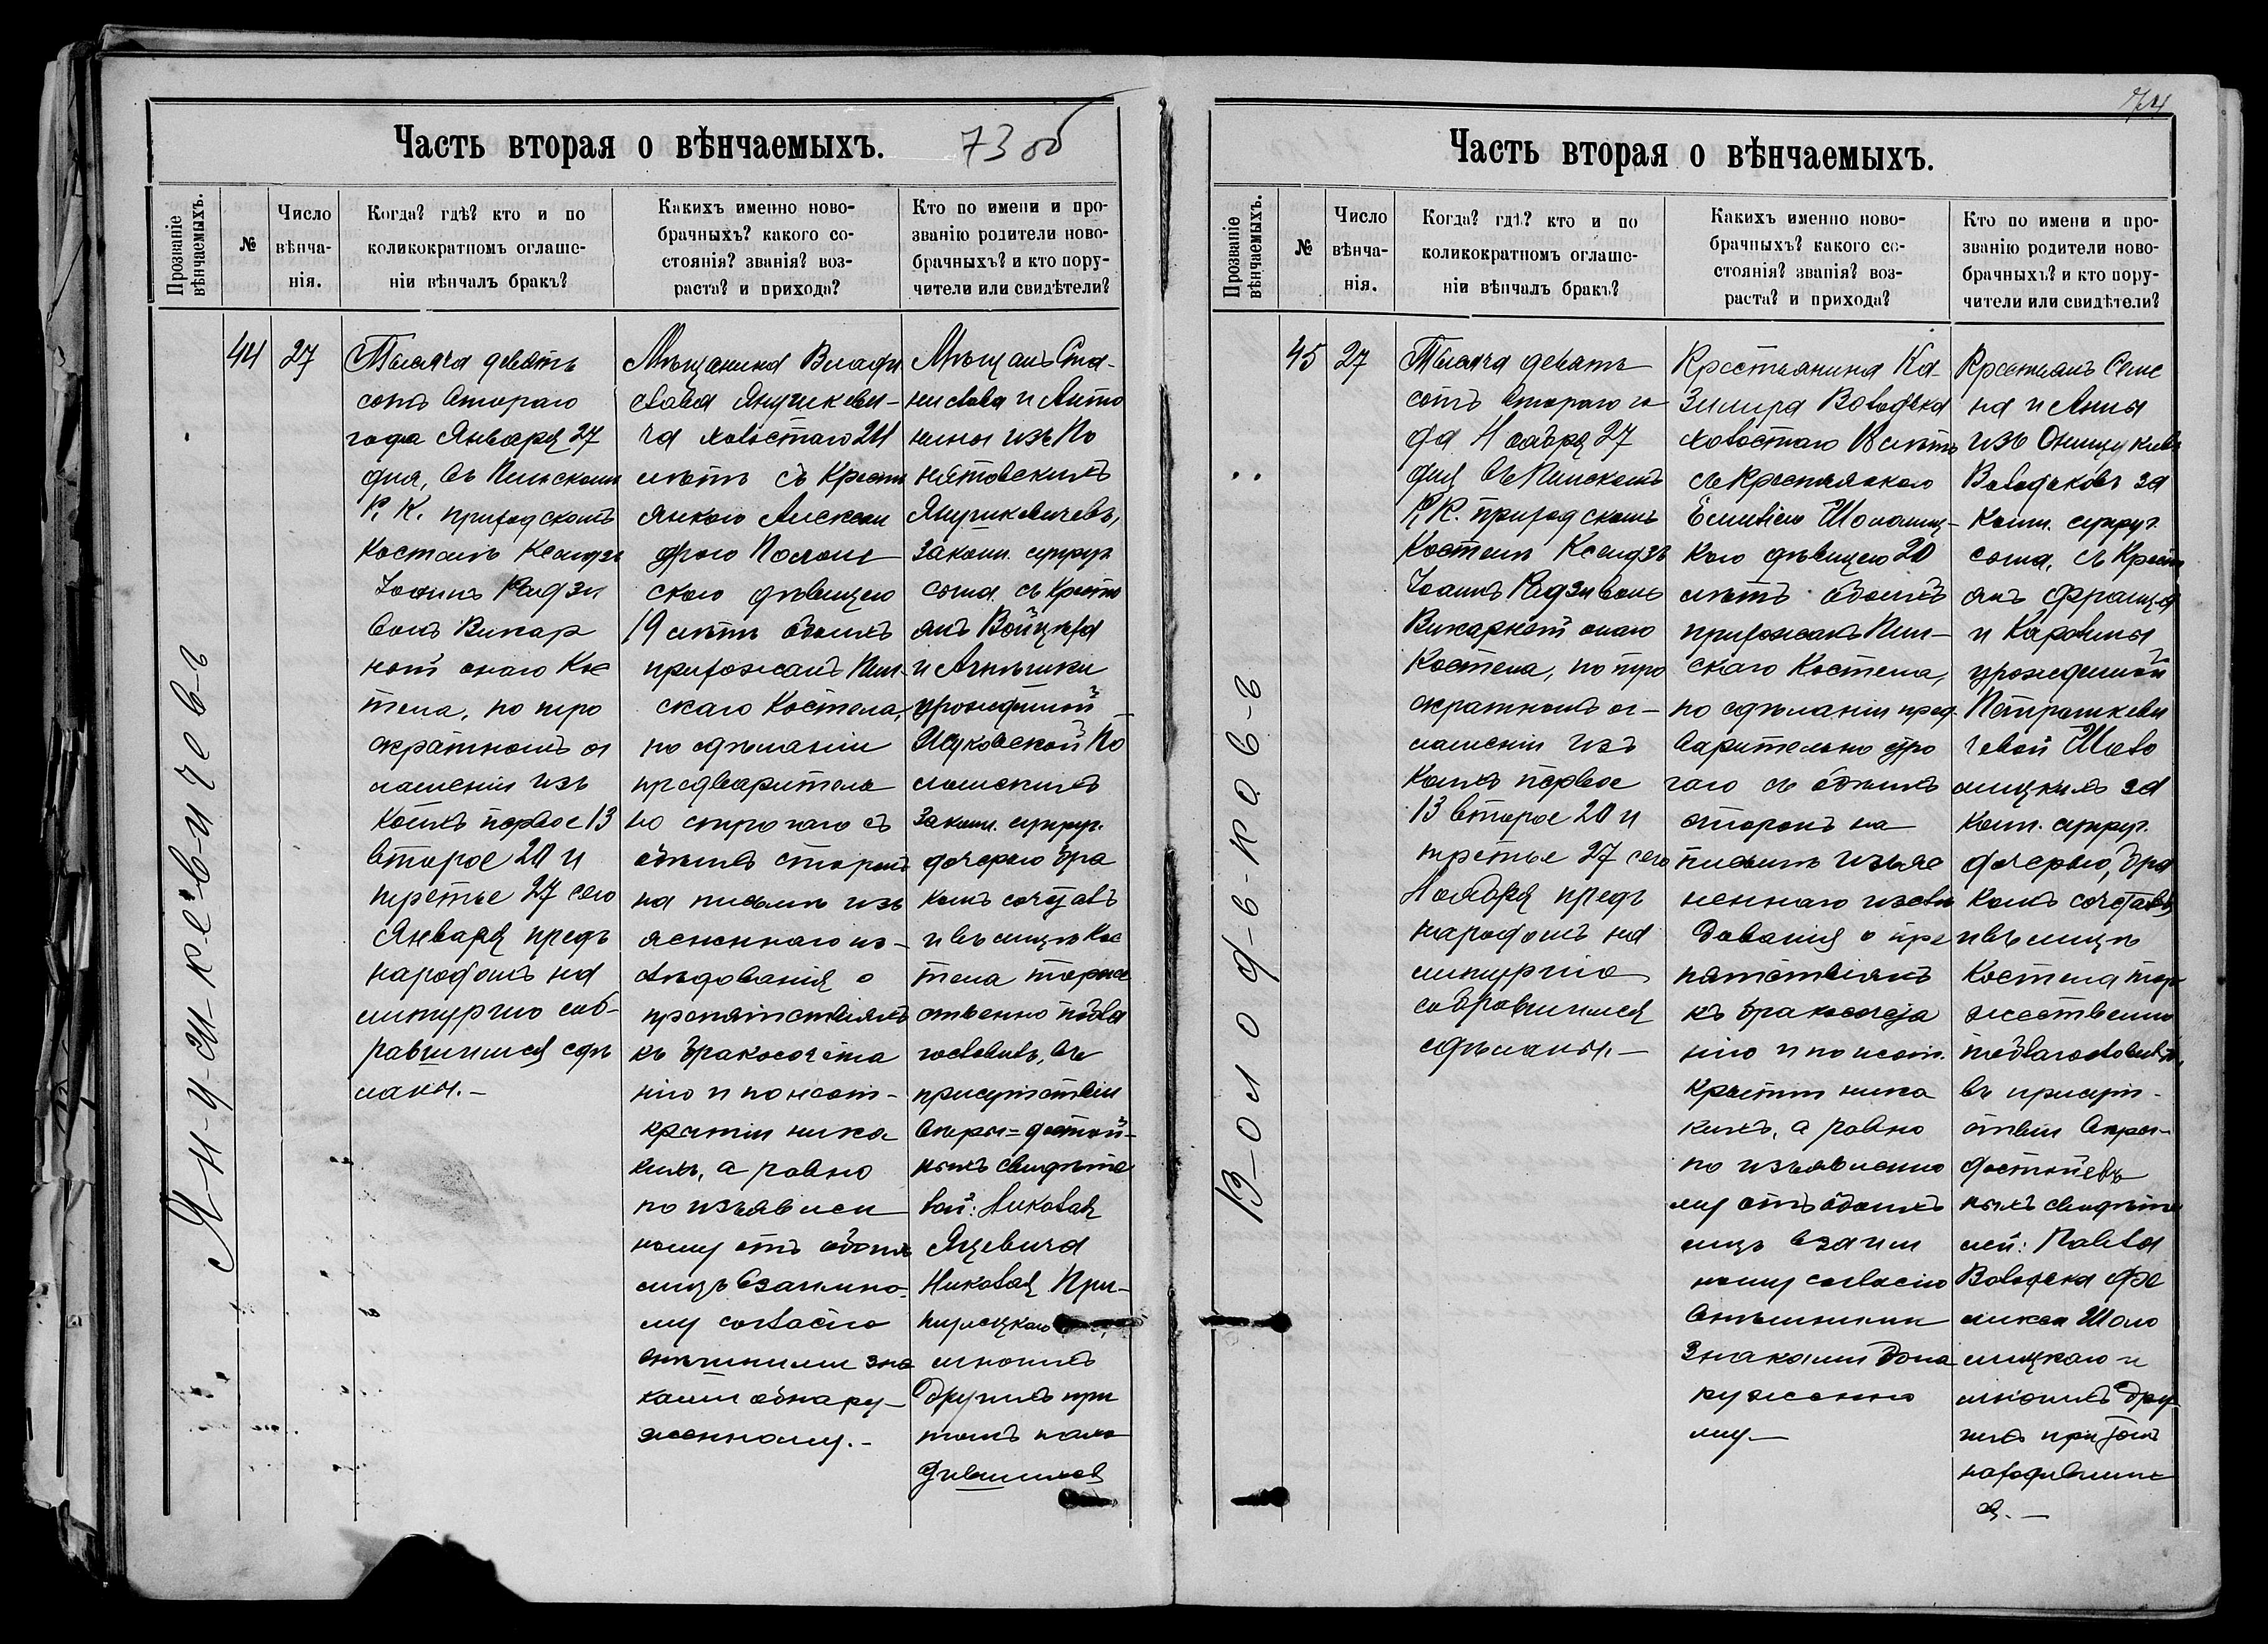 Часть вторая о вѣнчаемыхъ.
73 об
Прозваніе вѣнчаемыхъ.
№
Число вѣнча-
нія.
Когда? гдѣ? кто и по
коликократномъ оглаше-
ніи вѣнчалъ бракъ?
Какихъ именно ново-
брачныхъ? какого со-
стоянія? званія? воз-
раста? и прихода?
Кто по имени и про-
званію родители ново-
брачныхъ? и кто пору-
чители или свидѣтели?
44
27
Тысяча девять
сотъ второго
года Января 27
дня, въ Пинскомъ
Р. К. приходскомъ
Костелѣ Ксендзъ
Іоаннъ Радзи
волъ Викар
ный онаго Кос
тела, по тро
екратномъ ог
лашеніи изъ
коихъ первое 13
второе 20 и
третье 27 сего
Января предъ
народомъ на
литургію соб-
равшимся сдѣ
ланы.-
Мѣщанина Влади
слава Янушкеви-
ча холостаго 24
лѣтъ съ Крестъ
янкою Алексан
дрою Поломе
скою дѣвицею
19 лѣтъ обоихъ
прихожанъ Пин-
скаго Костела,
по сдѣланіи
предварительн
но строгаго съ
обѣихъ сторонъ
на письмѣ изъ
ясненнаго из-
слѣдованія о
препятствіяхъ
къ бракосочета
нію и по неот-
крытіи ника
кихъ, а равно
по изъявлен
ному отъ обоихъ
лицъ взаимно-
му согласію
внѣшними зна
ками обнару-
женному.-
Мѣщанъ Ста-
нислава и Анто
нины изъ По
нятовскихъ
Янушкевичевъ,
законн. супруг.
сына, съ Кресть
янъ Войцѣха
и Агнѣшки
урожденной
Жуковской По
ломскихъ
законн. супруг.
дочерью бра
комъ сочеталъ
и въ лицѣ Кос
тела торже
ственно побла
гословилъ, въ
присутствіи
вѣры=достой-
ныхъ свидѣте
лей: Николая
Яцевича
Николая При-
многихъ
другихъ при
томъ нахо
дившихся
Я-н-у-ш-к-е-в-и-ч-е-в-ъ
74
Часть вторая о вѣнчаемыхъ.
Прозваніе вѣнчаемыхъ.
№
Число вѣнча-
нія.
Когда? гдѣ? кто и по
коликократномъ оглаше-
ніи вѣнчалъ бракъ?
Какихъ именно ново-
брачныхъ? какого со-
стоянія? званія? воз-
раста? и прихода?
Кто по имени и про-
званію родители ново-
брачныхъ? и кто пору-
чители или свидѣтели?
45
27
Тысяча девять
сотъ второго го
да Ноября 27
дня въ Пинскомъ
Р. К. приходскомъ
Костелѣ Ксендзъ
Іоаннъ Радзиволъ
Викарный онаго
Костела, по тро
екратномъ ог-
лашеніи изъ
коихъ первое
13 второе 20 и
третье 27 сего
Ноября предъ
народомъ на
литургію
собравшимся
сдѣланы.-
Крестьянина Ка-
зимира Володька
холостаго 18 лѣтъ
съ Крестьянкою
Емиліею Шоломиц-
кою дѣвицею 20
лѣтъ обоихъ
прихожанъ Пин-
скаго Костела,
по сдѣланіи пред-
варительно стро
гаго съ обѣихъ
сторонъ на
письмѣ изъяс
неннаго изслѣ
дованія о пре
пятствіяхъ
къ бракосочета
нію и по неот.
крытіи ника
кихъ, а равно
по изъявленно
му отъ обоихъ
лицъ взаим
ному согласію
внѣшними
знаками обна
руженно
му-
Крестьянъ Семе
на и Анны
изъ
Володьковъ за
конн. супруг.
сына, съ Кресть
янъ Франца
и Каролины
урожденной
Петрашкеви
чевой Шоло
мицкихъ за
конн. супруг.
дочерью, бра
комъ сочеталъ
и въ лицѣ
Костела тор
жественно
поблагословилъ,
въ присут-
ствіи вѣры-
достойнѣв
ныхъ свидѣте
лей: Павла
Володька Фе
ликса Шоло
мицкаго и
многихъ дру
гихъ при томъ
находившихс
я.-
В-о-л-о-д-ь-к-о-в-ъ